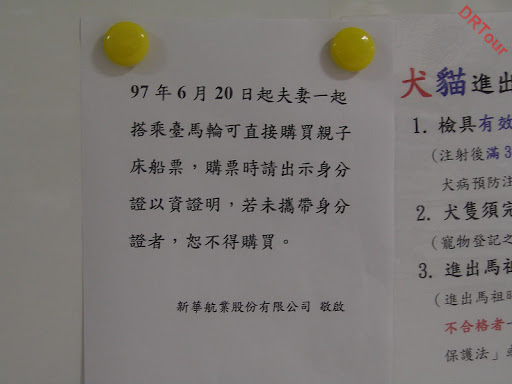 97 年 6 月 20 日起夫妻一起
搭乘臺馬輪可直接購買親子
床船票，購票時請出示身分
證以資證明，若未攜帶身分
證者，恕不得購買。
新華航業股份有限公司 敬啟
犬貓進出
1. 檢具有效
(注射後滿3
犬病預防注
2. 犬隻須完
(寵物登記之
3. 進出馬祖
(進出馬祖時
不合格者
保護法」或
DRTour